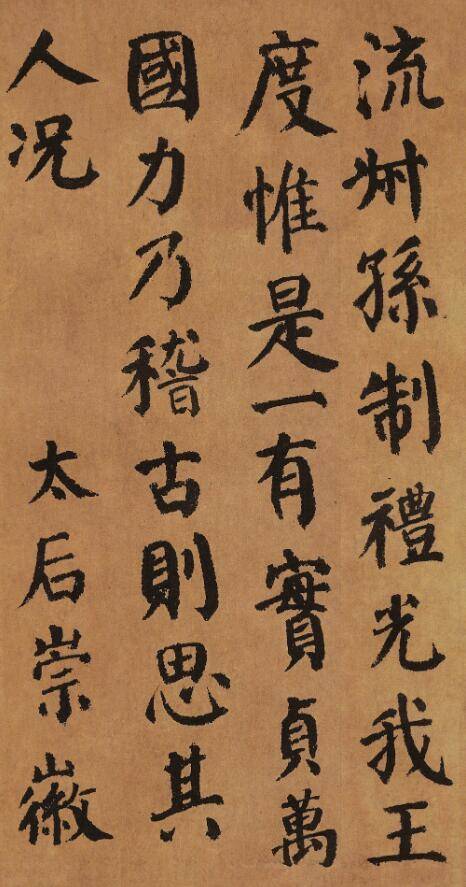 流叔孫制禮光我王
度惟是一有實貞萬
國力乃稽古則思其
人况 太后崇徽